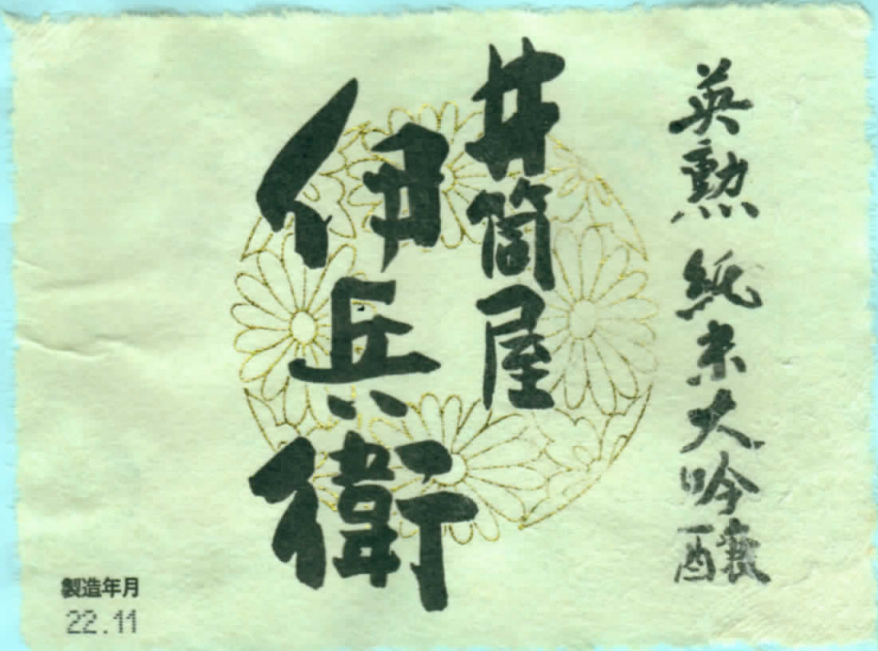 英勲 純米大吟醸
井筒屋
伊兵衛
製造年月
22.11